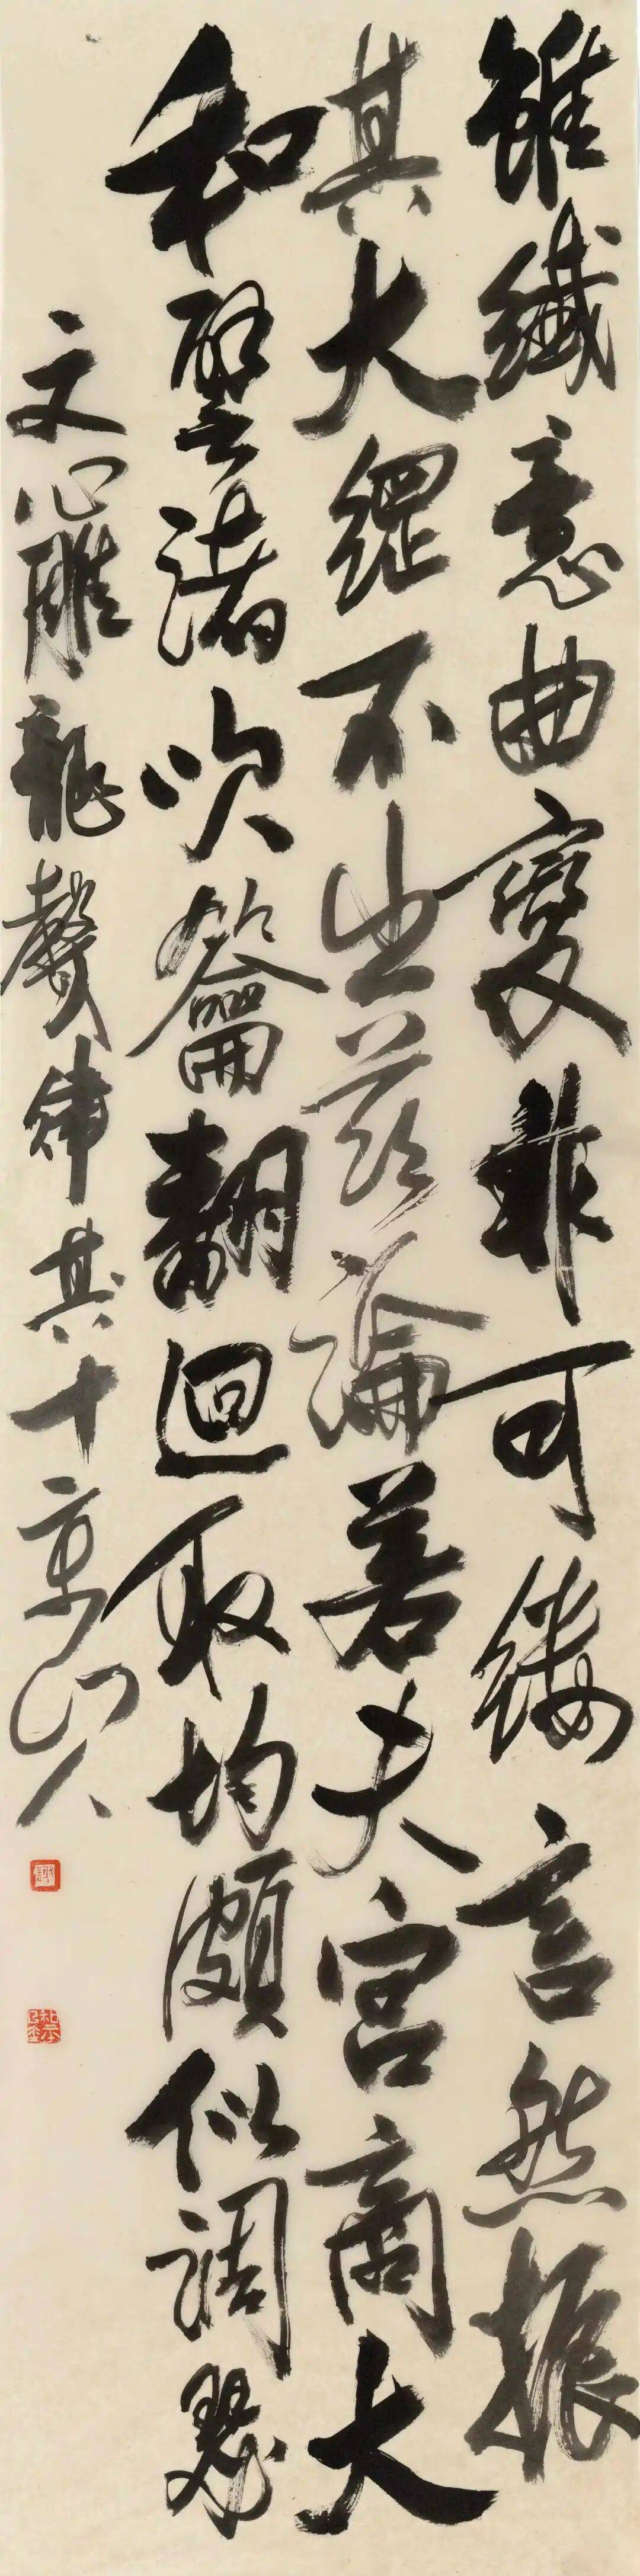 雖纖意曲變非可縷言然振
其大綱不出茲論若夫宮商大
和譬諸吹籥翻迴取均頗似調瑟
文心雕龍聲律其十京山人